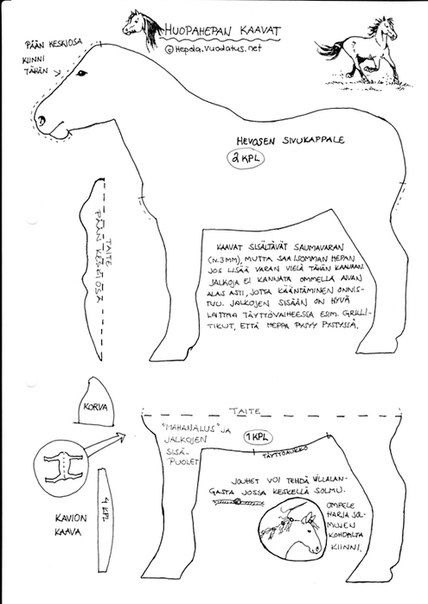 HUOPAHEPAN KAAVAT
© Hepola.vuodatus.net
PÄÄN KESKIOSA
KIINNI
TÄHÄN
HEVOSEN SIVUKAPPALE
2 KPL
TAITE
PÄÄN KESKIOSA
KAAVAT SISÄLTÄVÄT SAUMAVARAN
(N. 3MM), MUTTA SAA ISOMMAN HEPAN
JOS LISÄÄ VARAN VIELÄ TÄHÄN KAAVAAN.
JALKOJA EI KANNATA OMMELLA AIVAN
ALAS ASTI, JOTTA KÄÄNTÄMINEN ONNIS-
TUU. JALKOJEN SISÄÄN ON HYVÄ
LAITTAA TÄYTTÖVAIHEESSA ESIM. GRILLI-
TIKUT, ETTÄ HEPPA PYSYY PYSTYSSÄ.
KORVA
TAITE
"MAHANALUS" JA
JALKOJEN
SISÄ-
PUOLET
1 KPL
TÄYTTÖAUKKO
KAVION
KAAVA
4 KPL
JOUHET VOI TEHDÄ VILLALAN-
GASTA JOSSA KESKELLÄ SOLMU.
OMPELE
HARJA SOL-
MUJEN
KOHDALTA
KIINNI.